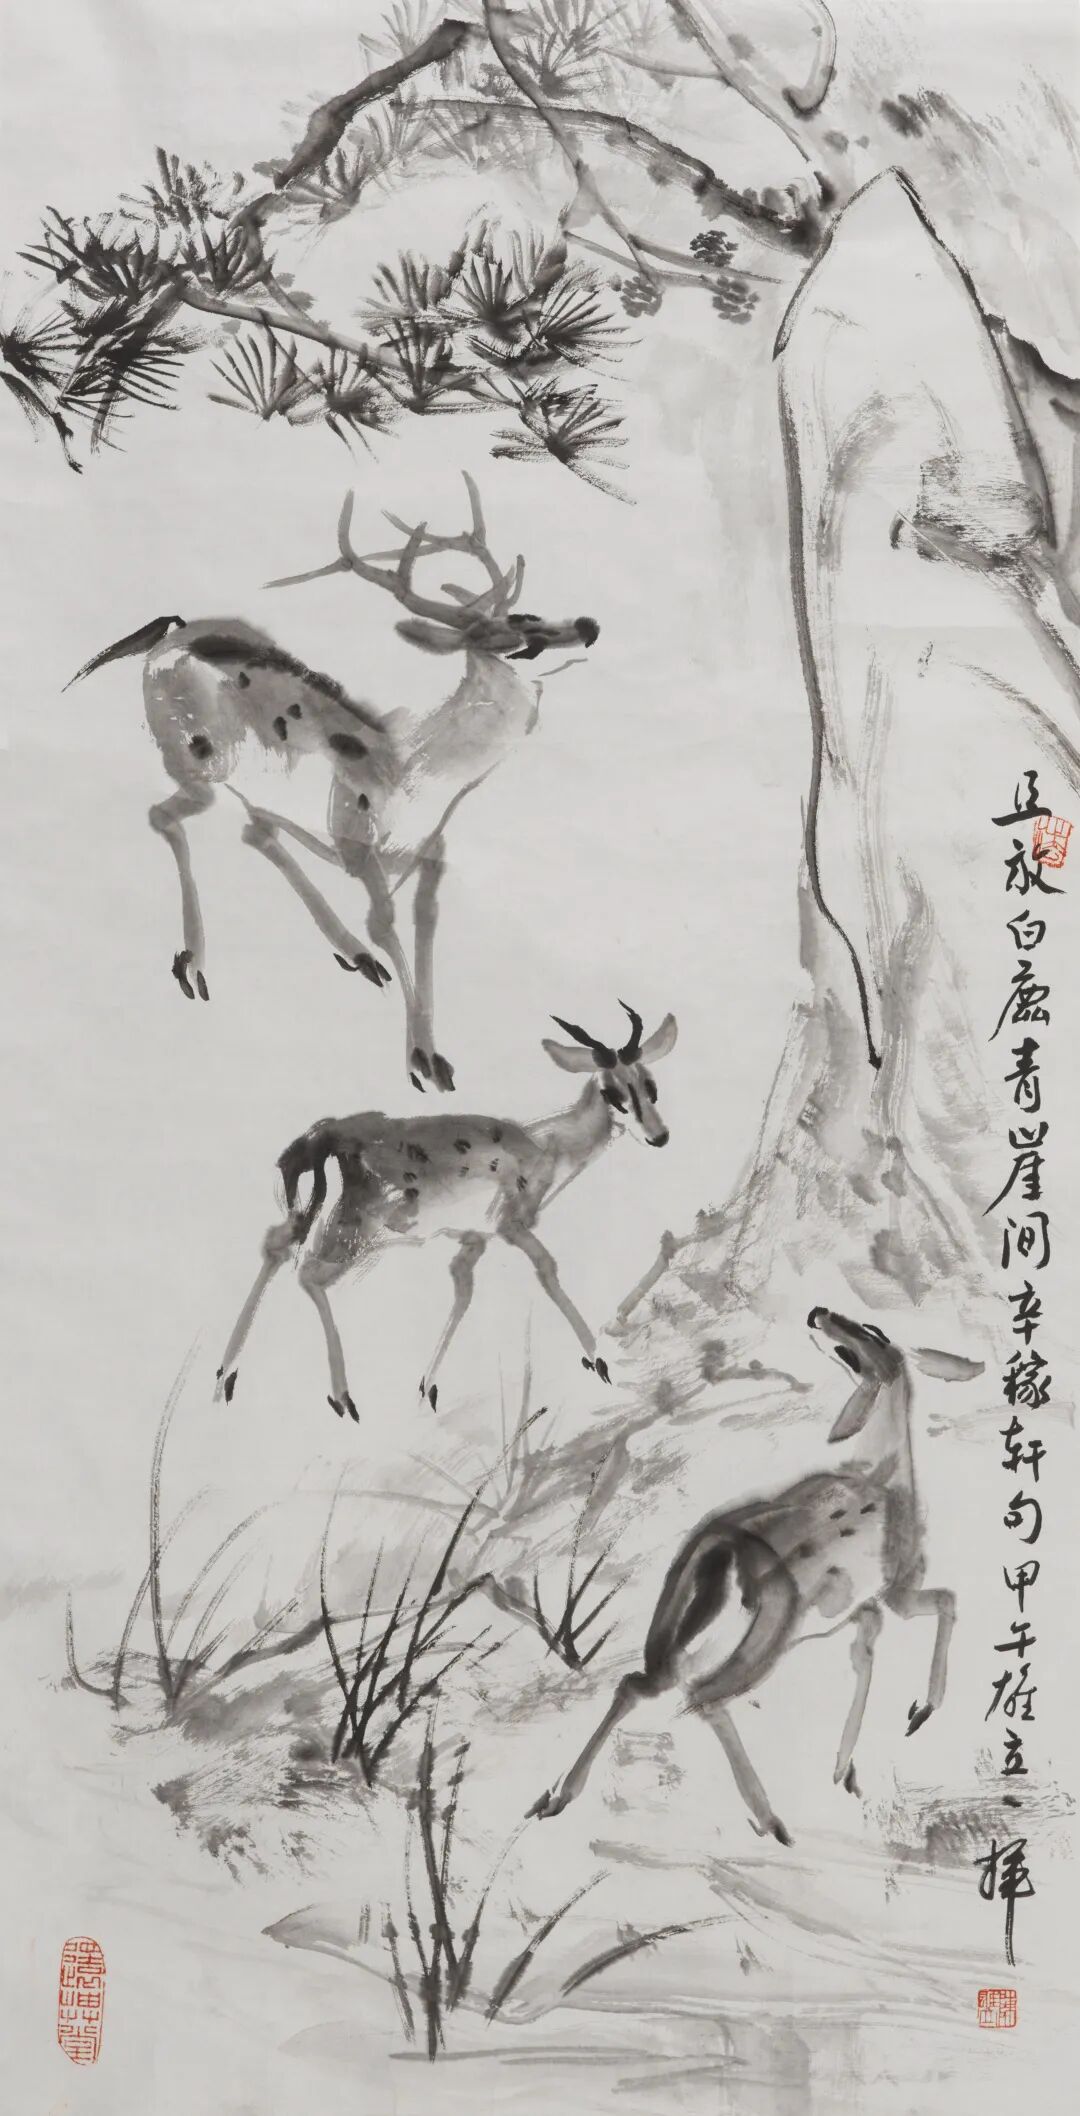 且放白鹿青崖间辛稼轩句甲午雄立一挥